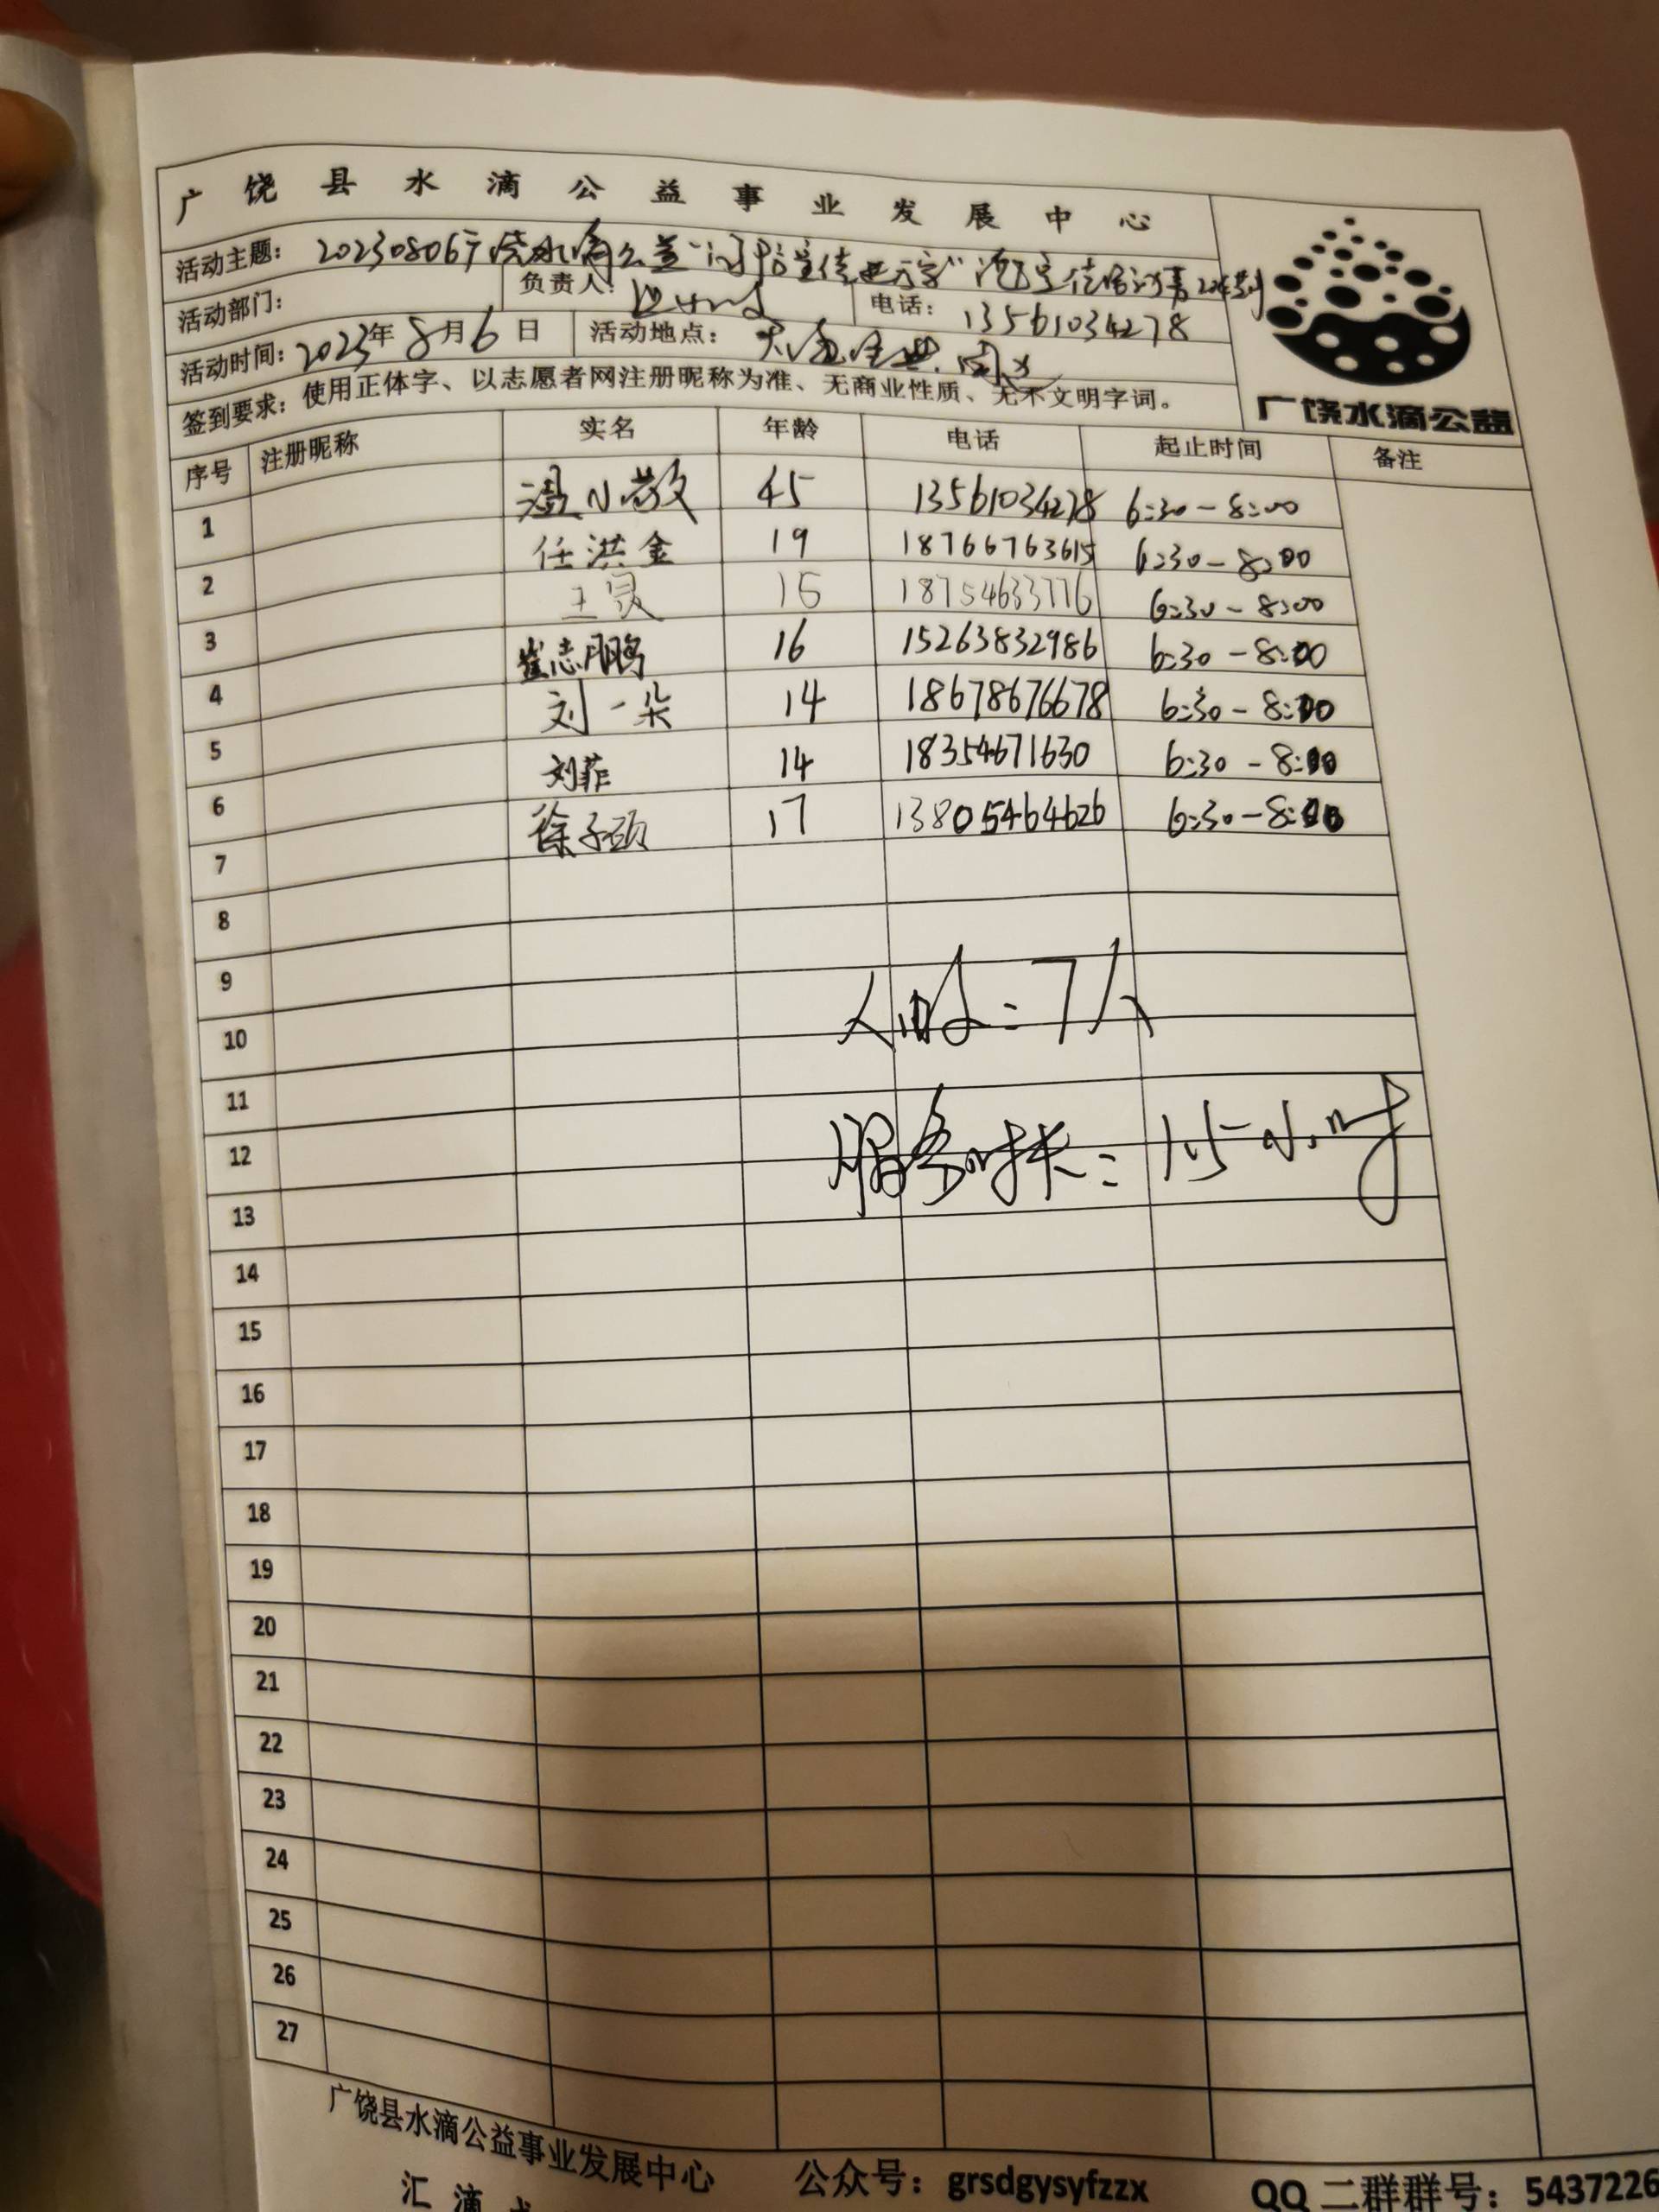 广饶县水滴公益事业发展中心
活动主题：20230806广饶水滴公益
活动部门： 负责人： 电话：13561034278
活动时间：2023年8月6日 活动地点：
签到要求：使用正体字、以志愿者网注册昵称为准、无商业性质、无不文明字词。
广饶水滴公益
序号 注册昵称 实名 年龄 电话 起止时间 备注
1 温小敬 45 13561034278 6:30-8:00
2 任洪金 19 18766763615 6:30-8:00
3 王灵 15 18754633776 6:30-8:00
4 崔志鹏 16 15263832986 6:30-8:00
5 刘一朵 14 18678676678 6:30-8:00
6 刘菲 14 18354671630 6:30-8:00
7 徐子硕 17 13805464626 6:30-8:00
8
9
10 7人
11
12 服务时长：1.5小时
13
14
15
16
17
18
19
20
21
22
23
24
25
26
27
广饶县水滴公益事业发展中心 公众号：grsdgysyfzzx QQ二群群号：5437226
汇滴